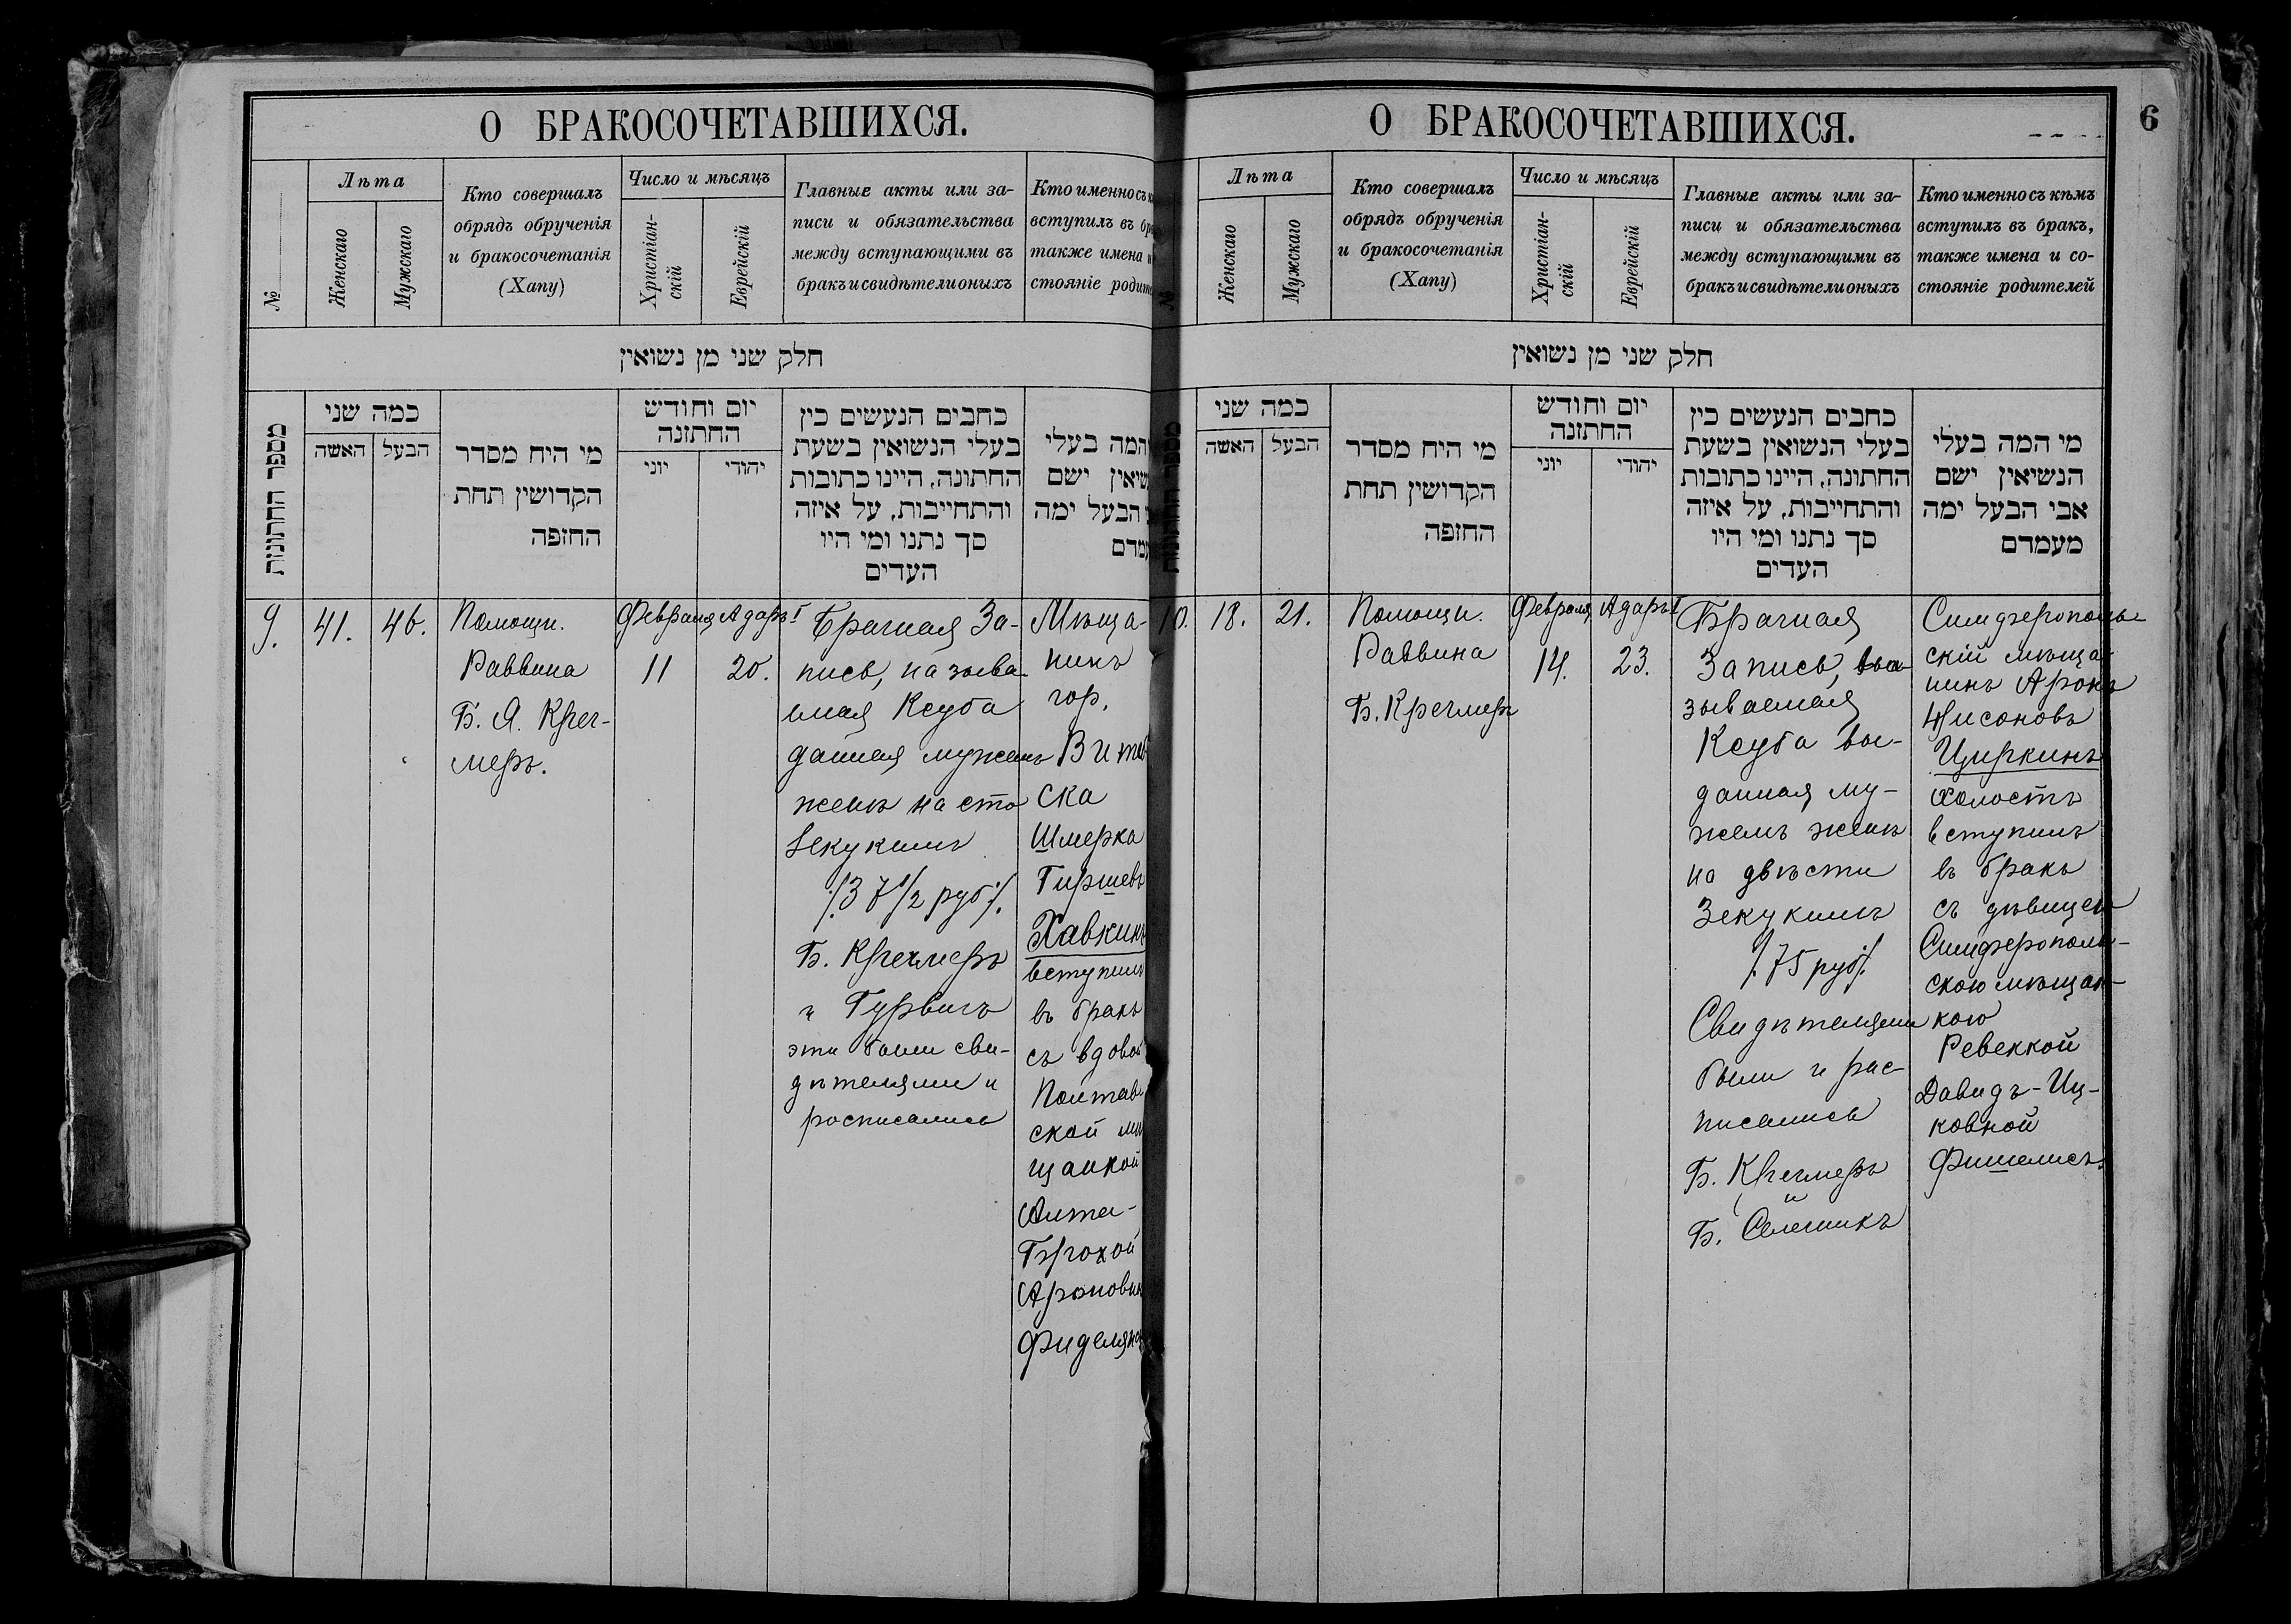 О БРАКОСОЧЕТАВШИХСЯ.
№
Лѣта
Женскаго
Мужскаго
Кто совершалъ
обрядъ обрученія
и бракосочетанія
(Хапу)
Число и мѣсяцъ
Христіан-
скій
Еврейскій
Главные акты или за-
писи и обязательства
между вступающими въ
бракъ и свидѣтели оныхъ
Кто именно съ
вступилъ въ
также имена
стояніе
חלק שני מן נשואין
מספר החתונות
כמה שני
האשה
הבעל
מי היח מסדר
הקדושין תחת
החופה
יום וחודש
החתונה
יוני
יהודי
כתבים הנעשים בין
בעלי הנשואין בשעת
החתונה, היינו כתובות
והתחייבות, על איזה
סך נתנו ומי היו
העדים
המה בעלי
ישם
הבעל ימה
9.
41.
46.
Помощн.
Раввина
Б. Я. Креч-
меръ.
Февраля
11
Адаръ I
20.
Брачная За-
пись, называ-
емая Ксуба
данная мужемъ
женѣ на сто
Зекукимъ
/:37 1/2 руб:/.
Б. Кречмеръ
и Гурвичъ
эти были сви-
дѣтелями и
росписались
Мѣща-
нинъ
гор.
Витеб
ска
Шмерка
Гиршевъ
Хавкинъ
вступилъ
въ бракъ
съ вдовой
Полтав
ской мѣ
щанкой
Брохой
Ароновн
О БРАКОСОЧЕТАВШИХСЯ.
6
№
Лѣта
Женскаго
Мужскаго
Кто совершалъ
обрядъ обрученія
и бракосочетанія
(Хапу)
Число и мѣсяцъ
Христіан-
скій
Еврейскій
Главные акты или за-
писи и обязательства
между вступающими въ
бракъ и свидѣтели оныхъ
Кто именно съ кѣмъ
вступилъ въ бракъ,
также имена и со-
стояніе родителей
חלק שני מן נשואין
כמה שני
האשה
הבעל
מי היח מסדר
הקדושין תחת
החופה
יום וחודש
החתונה
יוני
יהודי
כתבים הנעשים בין
בעלי הנשואין בשעת
החתונה, היינו כתובות
והתחייבות, על איזה
סך נתנו ומי היו
העדים
מי המה בעלי
הנשיאין ישם
אבי הבעל ימה
מעמדם
10.
18.
21.
Помощн.
Раввина
Б. Кречмеръ
Февраля
14.
Адаръ I
23.
Брачная
Запись, на-
зываемая
Ксуба вы-
данная му-
жемъ женѣ
на двѣсти
Зекукимъ
/:75 руб:/
Свидѣтелями
были и рас-
писались
Б. Кречмеръ
и
Б.
Симферополь-
скій мѣща-
нинъ Аронъ
Нисоновъ
Циркинъ
холостъ
вступилъ
въ бракъ
съ дѣвицей
Симферополь-
скою мѣщан-
кою
Ревеккой
Давидъ-Иц-
ковной
Фишелисъ.